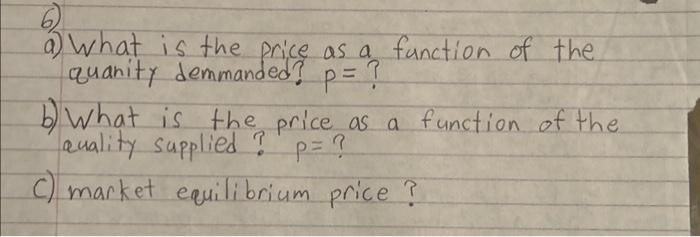 6)
a) What is the price as a function of the
quanity demmanded? p = ?
b) What is the price as a function of the
quality supplied? p = ?
c) market equilibrium price ?